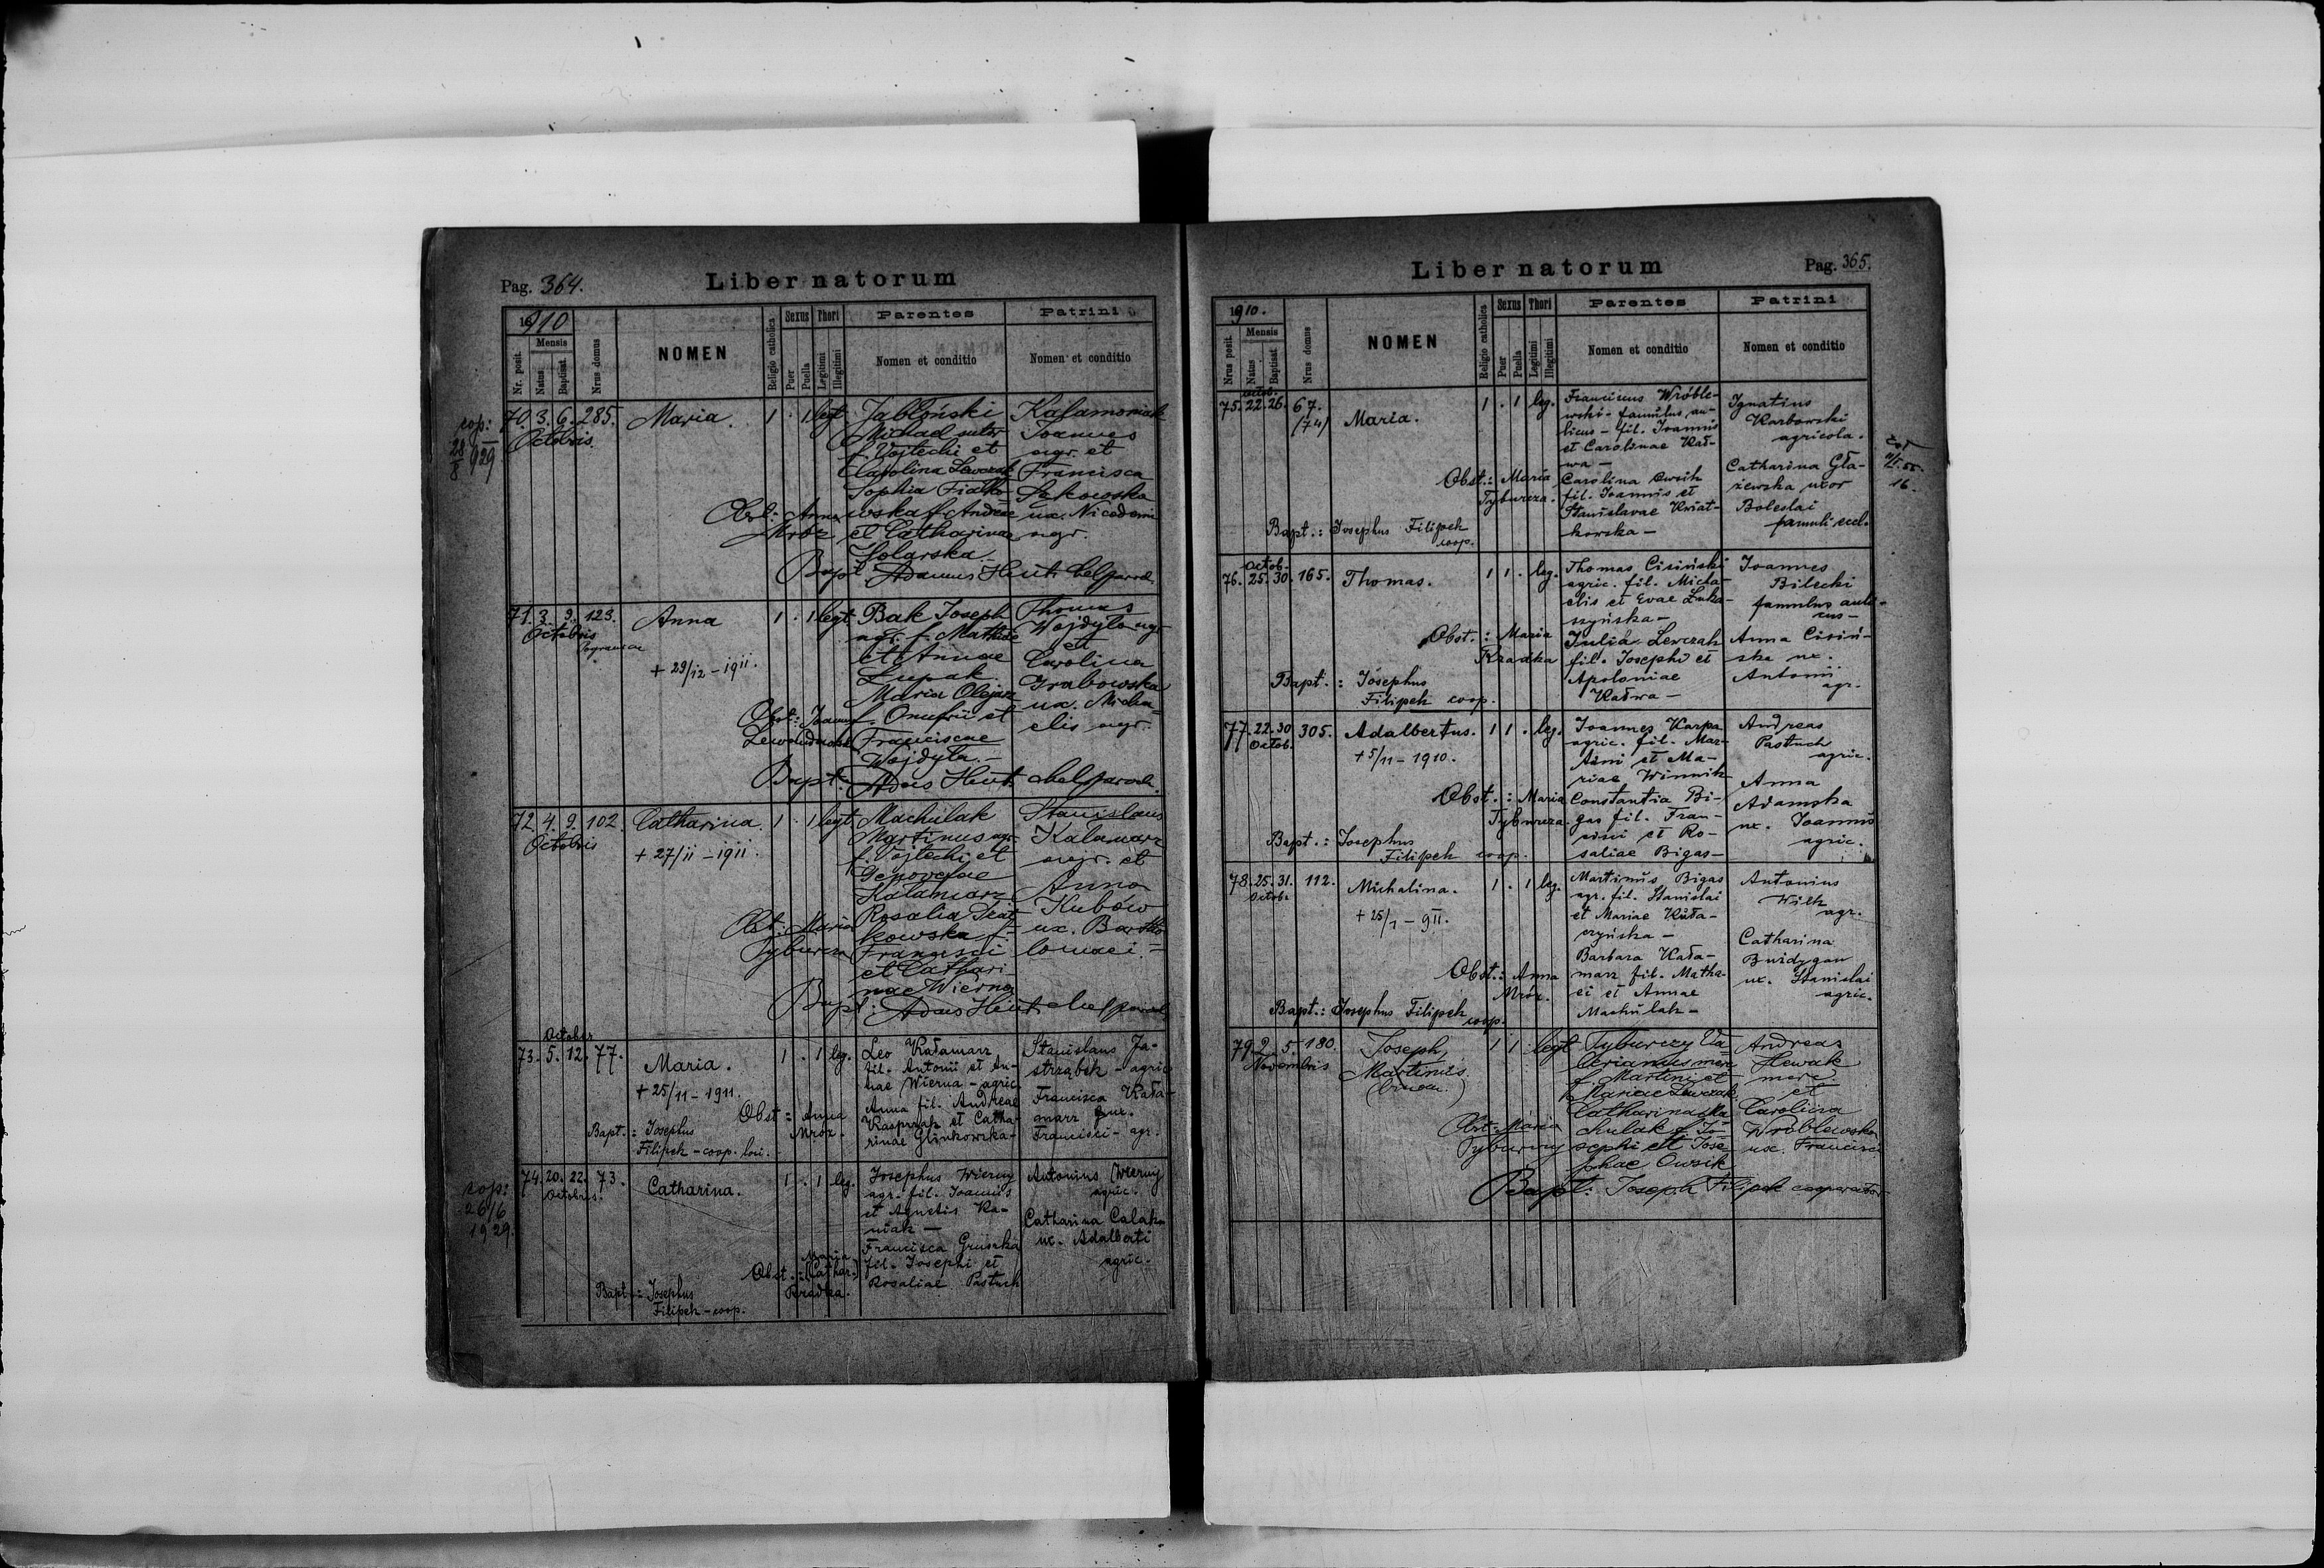 Pag. 364.
Liber natorum
1910
Nr. posit.
Mensis
Natus
Baptisat.
Nrus domus
NOMEN
Religio catholica
Sexus
Puer
Puella
Thori
Legitimi
Illegitimi
Parentes
Nomen et conditio
Patrini
Nomen et conditio
cop:
28/8 929
70. 3. 6. 285.
Octobris
Maria.
1 . 1 legt
Jabłoński
Michael sutor
f. Vojtechi et
Carolina Lewczak
Sophia Fiałko-
wska f. Andreae
et Catharinae
Solarska.
Kałamoniak
Joannes
agr. et
Francisca
Sakowska
ux. Nicodemi
agr.
Obst: Anna
Mróz
Bapt. Adamus Heut
71. 3. 9. 123.
Octobris
Anna
+ 29/12 - 1911.
1 . 1 legt
Bak Joseph
agr. f. Mathiae
et Annae
Łupak.
Maria Olejarz
f. Onufrii et
Franciscae
Wojdyła.-
Thomas
Wojdyło agr.
et
Carolina
Grabowska
ux. Micha-
elis agr.
Obst: Joanna
Bapt. Adus Heut
72. 4. 9. 102.
Octobris
Catharina.
+ 27/11 - 1911.
1 . 1 legt
Machulak
Martinus agr.
f. Vojtechi et
Genovefae
Kałamarz
Rosalia
kowska f.
Francisci
et Cathari-
nae Wierna
Stanislaus
Kałamarz
agr. et
Anna
Kubów
ux. Bartho-
lomaei.-
Obst: Maria
Tyburcza
Bapt: Adus Heut
October
73. 5. 12. 77.
Maria.
+ 25/11 - 1911.
1 . 1 leg.
Leo Kałamarz
fil. Antonii et An-
nae Wierna - agric.
Anna fil. Andreae
Kasprzak et Catha-
rinae Glinkowska-
Stanislaus Ja-
strząbek - agric.
Francisca Kała-
marz ux.
Francisci - agr.
Obst: Anna
Mróz.
Bapt.: Josephus
Filipek - coop. loci.
cop:
26/6
1929.
74. 20. 22. 73.
Octobris.
Catharina.
1 . 1 leg.
Josephus Wierny
agr. fil. Joannis
et Agnetis Ka-
niak -
Francisca Gruszka
fil. Josephi et
Rosaliae Pastuch
Antonius Wierny
agric.
Catharina Calak
ux. Adalberti
agric.
Obst.: Maria
(Cathar.)
Kradka.
Bapt.: Josephus
Filipek - coop.
Liber natorum
Pag. 365.
1910.
Nrus posit.
Mensis
Natus
Baptisat.
Nrus domus
NOMEN
Religio catholica
Sexus
Puer
Puella
Thori
Legitimi
Illegitimi
Parentes
Nomen et conditio
Patrini
Nomen et conditio
Octob.
75. 22. 26. 67.
(74)
Maria.
1 . 1 leg.
Franciscus Wróble-
wski - famulus au-
licus - fil. Joannis
et Carolinae Kał-
wa -
Carolina Cwik
fil. Joannis et
Stanislavae Kwiat-
kowska -
Ignatius
Karbowski
agricola.
Catharina Gła-
żewska uxor
Boleslai
famuli eccl.
Obst.: Maria
Tyburcza.
Bapt.: Josephus Filipek
coop.
16.
Octob.
76. 25. 30. 165.
Thomas.
1 1 . leg.
Thomas Cisiński
agric. fil. Micha-
elis et Evae Łuka-
szyńska -
Julia Lewczak
fil. Josephi et
Apoloniae
Kałwa -
Joannes
Bilecki
famulus auli-
cus -
Anna Cisiń-
ska ux.
Antonii
agr.
Obst.: Maria
Kradka
Bapt.: Josephus
Filipek coop.
77. 22. 30 305.
Octob.
Adalbertus.
+ 5/11 - 1910.
1 1 . leg.
Joannes Karpa
agric. fil. Mar-
tini et Ma-
riae Winnik
Constantia Bi-
gas fil. Fran-
cisci et Ro-
saliae Bigas -
Andreas
Pastuch
agric.
Anna
Adamska
ux. Joannis
agric.
Obst.: Maria
Tyburcza.
Bapt.: Josephus
Filipek coop.
78. 25. 31. 112.
Octob.
Michalina.
+ 25/1 - 911.
1 . 1 leg.
Martinus Bigas
agr. fil. Stanislai
et Mariae Kuła-
czyńska -
Barbara Kała-
marz fil. Matha-
ei et Annae
Machulak -
Antonius
Wilk
agr.
Catharina
Buidygan
ux. Stanislai
agric.
Obst.: Anna
Mróz.
Bapt.: Josephus Filipek
coop.
79. 2. 5. 180.
Novembris
Joseph,
Martinus.
1 1 . legt
Tyburczy Va-
lerianus merc.
f. Martini et
Mariae Lewczak,
Catharina Ma-
chulak f. Jo-
sephi et Jose-
phae Owsik
Andreas
Hewak
merc.
et
Carolina
Wróblewska
ux. Francisci
Obst: Maria
Tyburczy
Bapt: Joseph Filipek cooperator